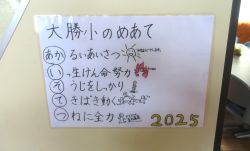 大勝小のめあて
あかるいあいさつ
いっ生けん命努力
そうじをしっかり
てきぱき動く
つねに全力
2025